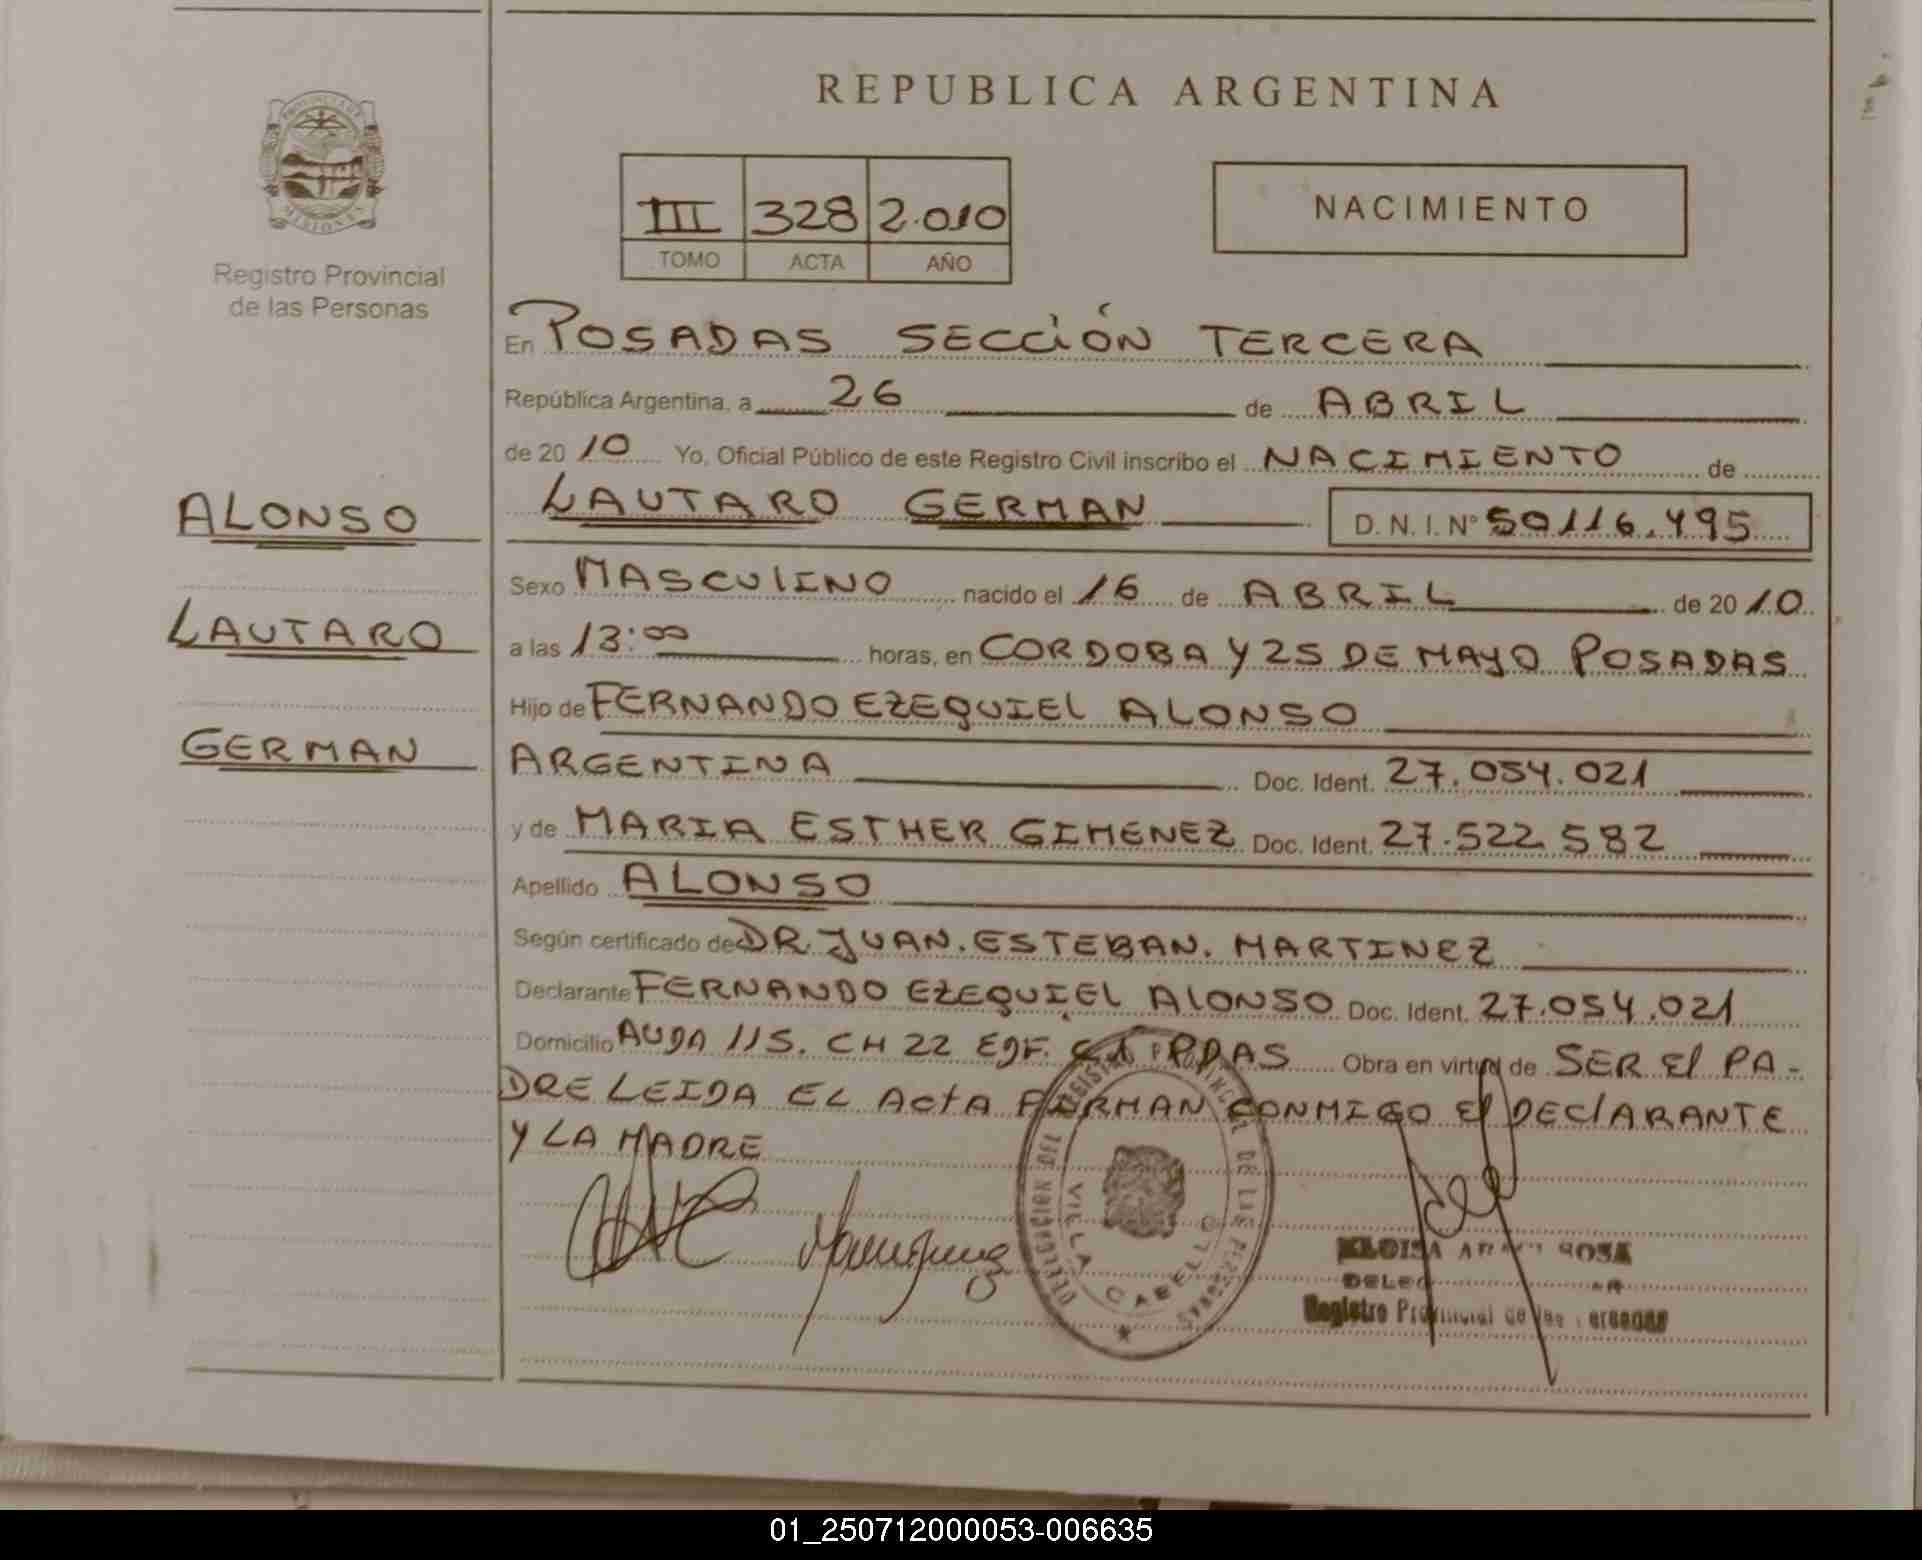 REPUBLICA ARGENTINA
PROVINCIA DE MISIONES
Registro Provincial
de las Personas
III 328 2.010
TOMO ACTA AÑO
NACIMIENTO
En POSADAS SECCIÓN TERCERA
República Argentina, a 26 de ABRIL
de 2010 Yo, Oficial Público de este Registro Civil inscribo el NACIMIENTO de
LAUTARO GERMAN D. N. I. Nº 50116.495
ALONSO
LAUTARO
GERMAN
Sexo MASCULINO nacido el 16 de ABRIL de 2010
a las 13:00 horas, en CORDOBA Y 25 DE MAYO POSADAS
Hijo de FERNANDO EZEQUIEL ALONSO
ARGENTINA Doc. Ident. 27.054.021
y de MARIA ESTHER GIMENEZ Doc. Ident. 27.522.582
Apellido ALONSO
Según certificado de DR. JUAN. ESTEBAN. MARTINEZ
Declarante FERNANDO EZEQUIEL ALONSO Doc. Ident. 27.054.021
Domicilio AVDA 115. CH 22 EDF. PDAS Obra en virtud de SER El PA-
DRE LEIDA EL ActA FIRMAN CONMIGO El DEClARANTE
Y LA MADRE
DELEGACION DEL REGISTRO PROVINCIAL DE LAS PERSONAS
VILLA CABELLO
ROSA
Registro Provincial de las Personas
01_250712000053-006635